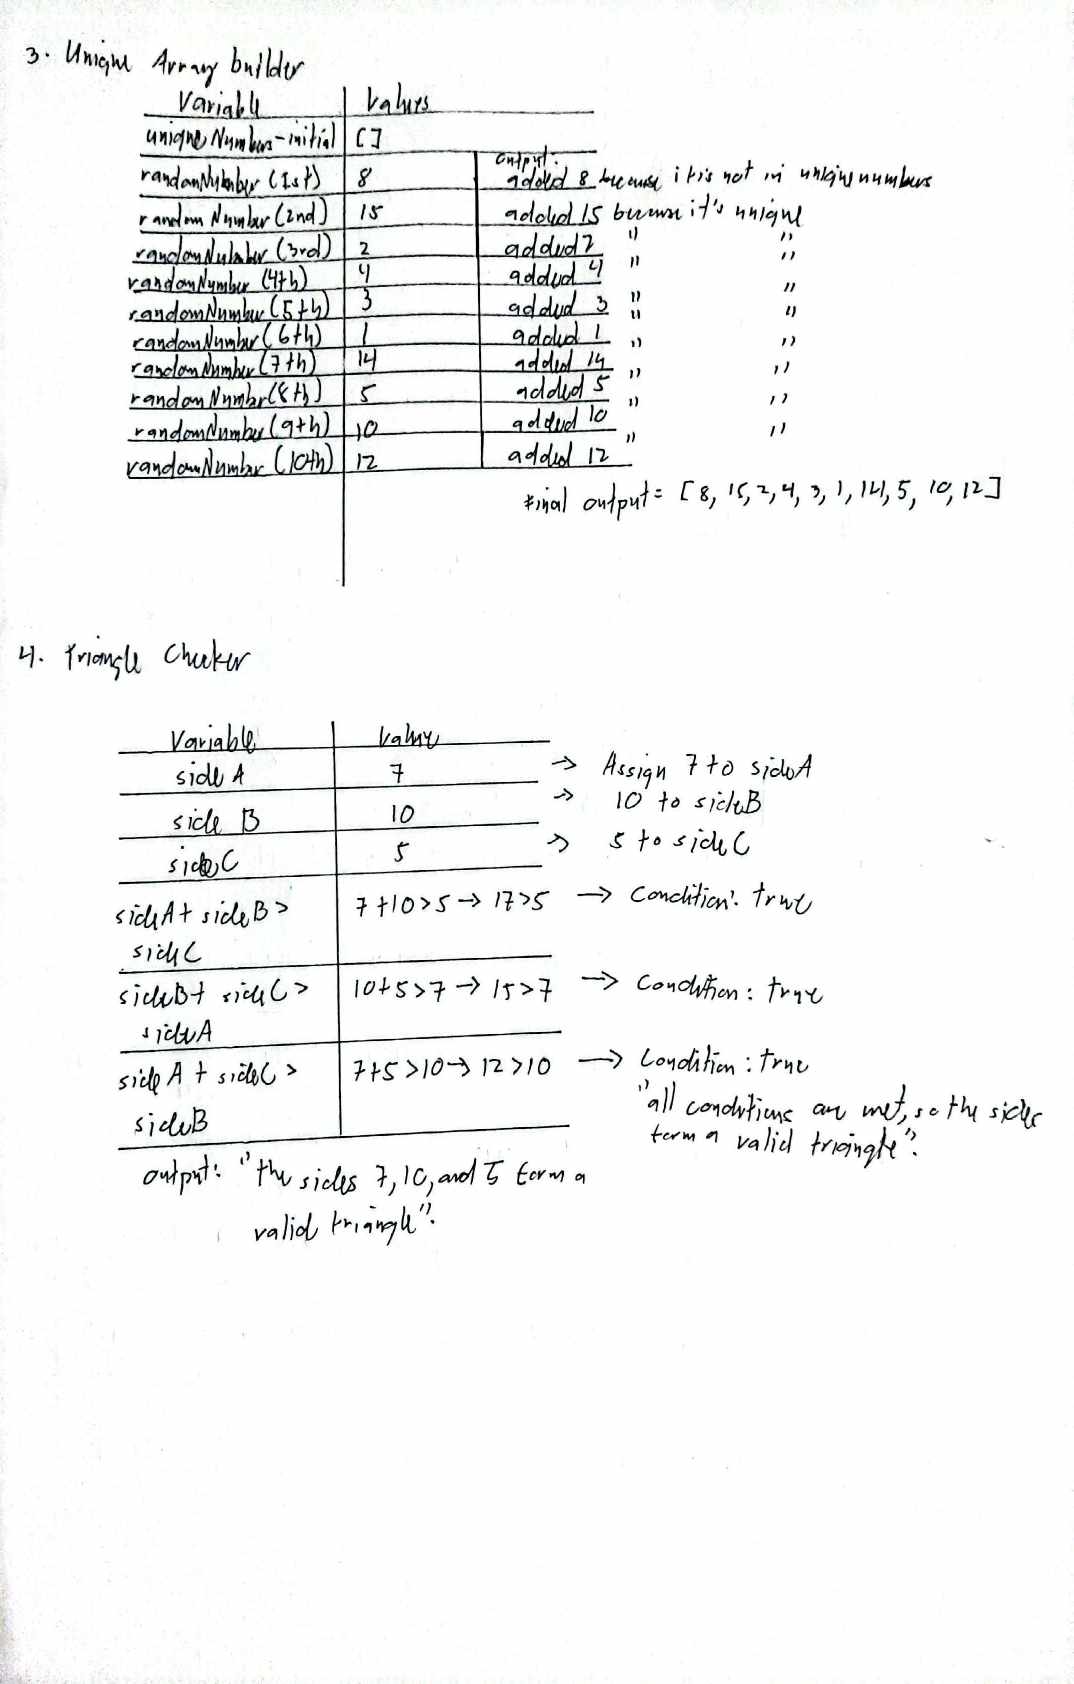 3. Unique Array builder
Variable Values
uniqueNumbers-initial []
output:
randomNumber (1st) 8 added 8 because it is not in unique numbers
random Number (2nd) 15 added 15 because it's unique
randomNumber (3rd) 2 added 2 " "
randomNumber (4th) 4 added 4 " "
randomNumber (5th) 3 added 3 " "
randomNumber (6th) 1 added 1 " "
randomNumber (7th) 14 added 14 " "
random Number (8th) 5 added 5 " "
randomNumber (9th) 10 added 10 " "
randomNumber (10th) 12 added 12 " "
Final output = [8, 15, 2, 4, 3, 1, 14, 5, 10, 12]
4. Triangle Checker
Variable value
side A 7 → Assign 7 to sideA
side B 10 → 10 to sideB
sideC 5 → 5 to sideC
sideA + sideB > 7+10>5 → 17>5 → Condition: true
sideC
sideB + sideC > 10+5>7 → 15>7 → Condition: true
sideA
side A + sideC > 7+5>10 → 12>10 → Condition: true
sideB "all conditions are met, so the sides
form a valid triangle".
output: "the sides 7, 10, and 5 form a
valid triangle".